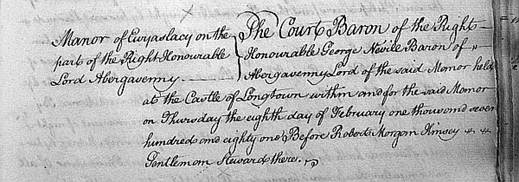 Manor of Ewyaslacy on the The Court Baron of the Right
part of the Right Honourable Honourable George Nevile Baron of
Lord Abergavenny Abergavenny Lord of the said Manor held
at the Castle of Longtown within and for the said Manor
on Thursday the eighth day of February one thousand seven
hundred and eighty one Before Robert Morgan Kinsey
Gentleman Steward there.